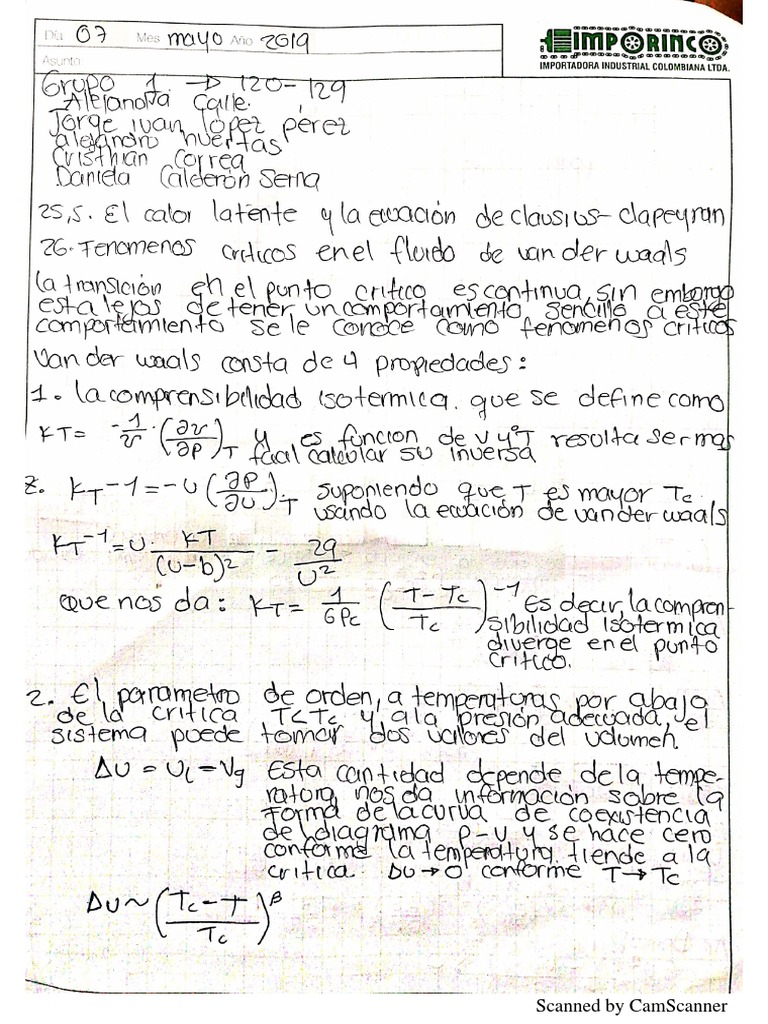 Día 07 Mes mayo Año 2019
Asunto
IMPORINCO
IMPORTADORA INDUSTRIAL COLOMBIANA LTDA.
Grupo 1. → 120-129
Alejandra Calle.
Jorge ivan lópez pérez
alejandro huertas
Cristhian Correa
Daniela Calderón Serna
25,5. El calor latente y la ecuación de clausius-clapeyran
26. Fenomenos criticos en el fluido de van der waals
la transición en el punto critico es continua, sin embargo
esta lejos de tener un comportamiento sencillo a este
comportamiento se le conoce como fenomenos criticos
Van der waals consta de 4 propiedades:
1. la comprensibilidad isotermica. que se define como
KT = -1/v · (∂v/∂p)T y es funcion de v y T resulta ser mas
facil calcular su inversa
2. KT -1 = -v (∂p/∂v)T suponiendo que T es mayor Tc
usando la ecuación de van der waals
KT-1 = v · KT/(v-b)² - 2a/v²
que nos da: KT = 1/6Pc (T-Tc/Tc)-1 Es decir, la compren-
sibilidad isotermica
diverge en el punto
critico.
2. El parametro de orden, a temperaturas por abajo
de la critica T<Tc y a la presión adecuada, el
sistema puede tomar dos valores del volumen.
Δv = vl - vg Esta cantidad depende de la tempe-
ratura, nos da información sobre la
forma de la curva de coexistencia
del diagrama p-v y se hace cero
conforme la temperatura tiende a la
critica. Δv→0 conforme T→Tc
Δv ~ (Tc-T/Tc)β
Scanned by CamScanner